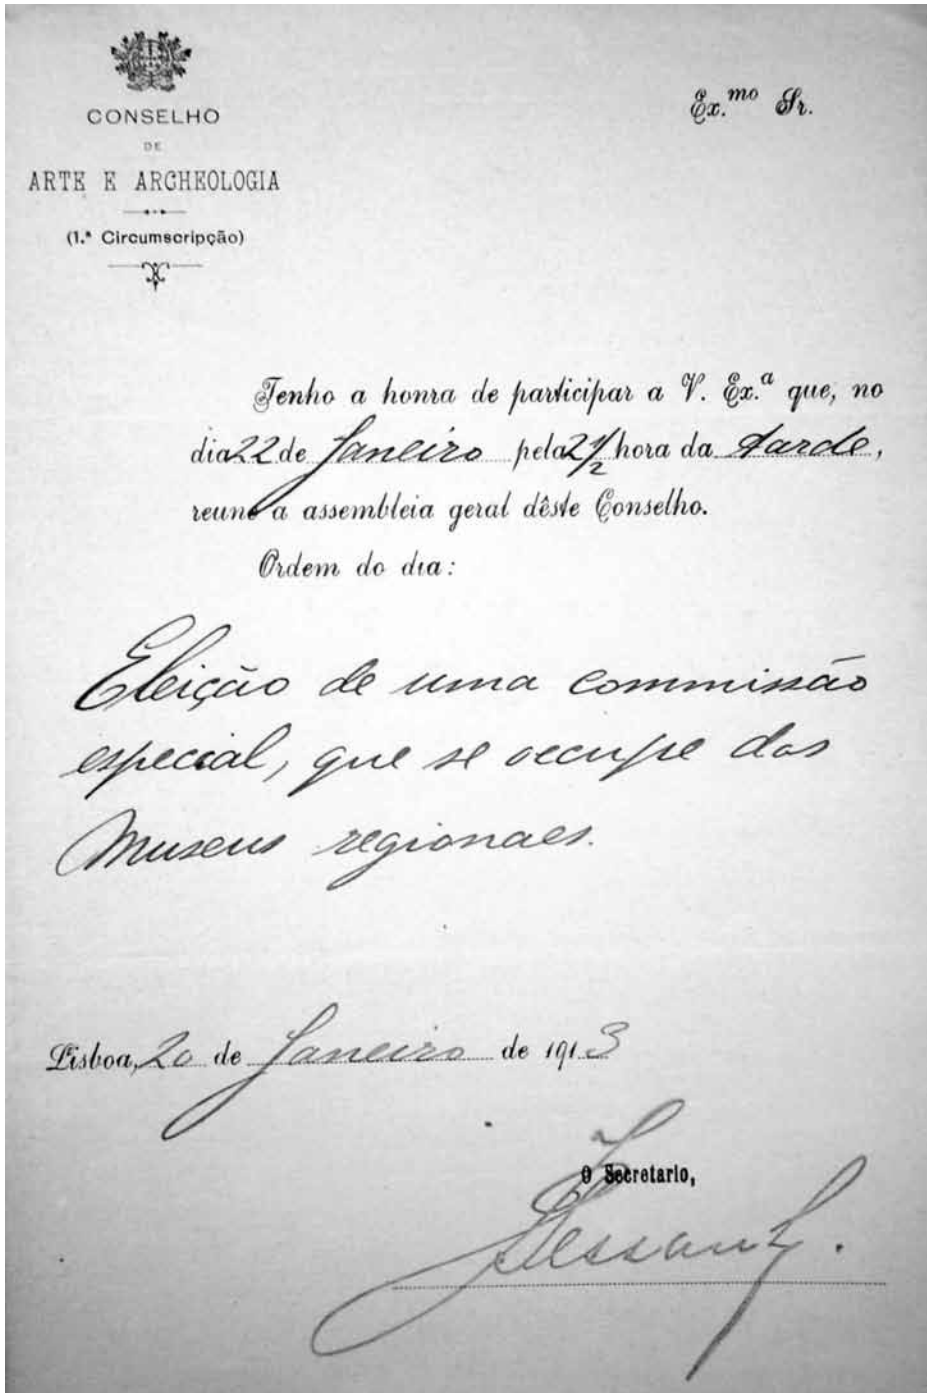 CONSELHO
DE
ARTE E ARCHEOLOGIA
(1.ª Circumscripção)
Ex.mo Sr.
Tenho a honra de participar a V. Ex.ª que, no
dia 22 de Janeiro pela 2 1/2 hora da tarde,
reune a assembleia geral dêste Conselho.
Ordem do dia:
Eleição de uma commissão
especial, que se occupe dos
Museus regionaes.
Lisboa, 20 de Janeiro de 1913
O Secretario,